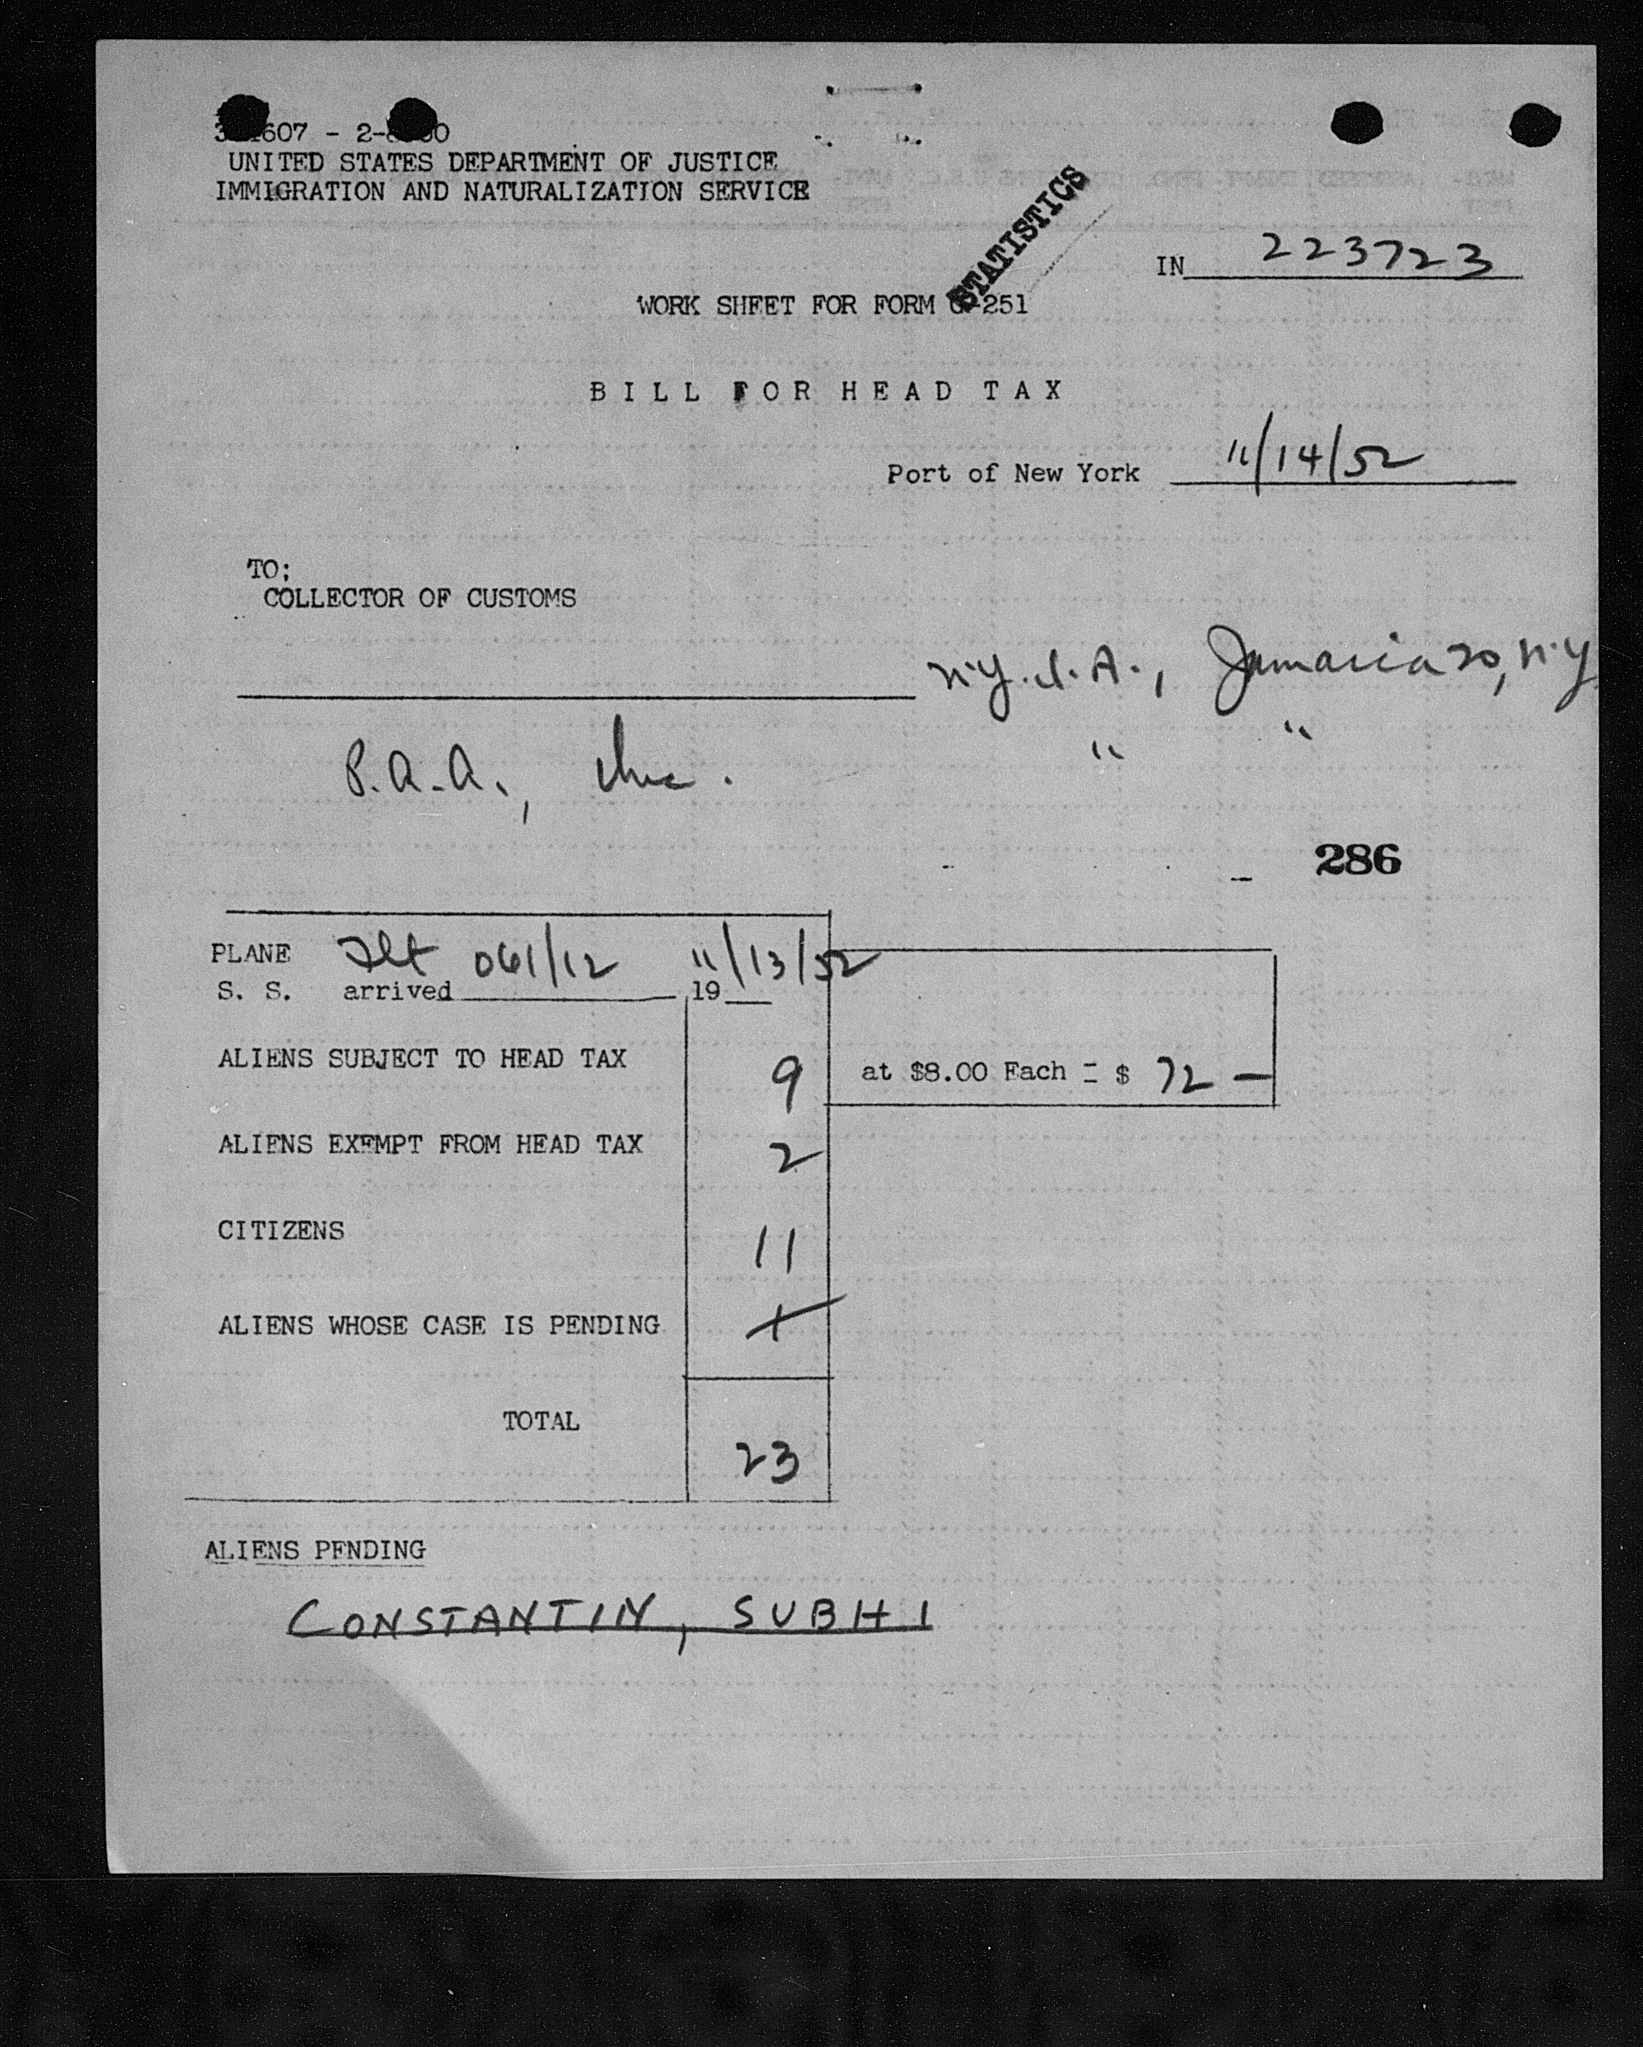 607 - 2-
UNITED STATES DEPARTMENT OF JUSTICE
IMMIGRATION AND NATURALIZATION SERVICE
STATISTICS
IN 223723
WORK SHEET FOR FORM G-251
BILL FOR HEAD TAX
Port of New York 11/14/52
TO:
COLLECTOR OF CUSTOMS
N.Y.I.A., Jamaica 20, N.Y
P.A.A., Inc. " "
286
PLANE Flt 061/12 11/13/52
S. S. arrived 19
ALIENS SUBJECT TO HEAD TAX 9 at $8.00 Each = $ 72 —
ALIENS EXEMPT FROM HEAD TAX 2
CITIZENS 11
ALIENS WHOSE CASE IS PENDING 1
TOTAL
23
ALIENS PENDING
CONSTANTIN, SUBHI